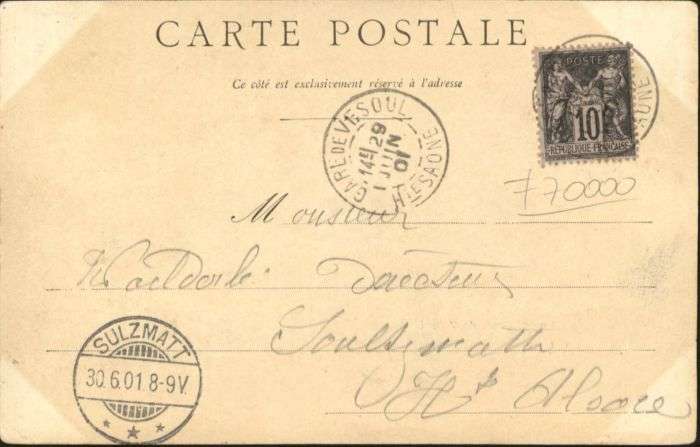 CARTE POSTALE
Ce côté est exclusivement réservé à l'adresse
POSTE
10c
RÉPUBLIQUE FRANÇAISE
GARE DE VESOUL
14H 29
JUIN
01
Hte SAONE
770000
Monsieur
Directeur
Soultzmatt
Hte Alsace
SULZMATT
30.6.01 8-9V.